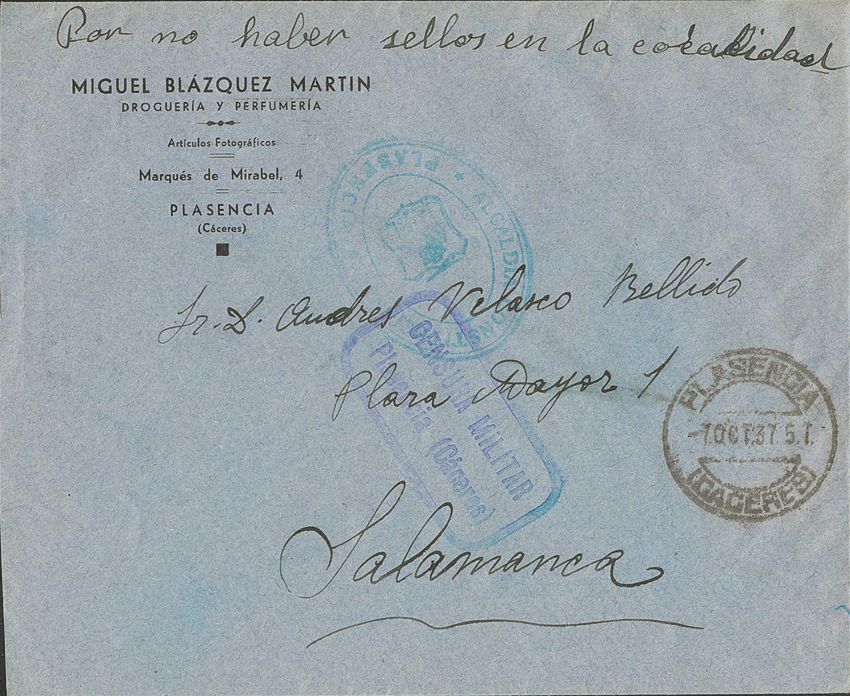 Por no haber sellos en la localidad
MIGUEL BLÁZQUEZ MARTIN
DROGUERÍA Y PERFUMERÍA
Artículos Fotográficos
Marqués de Mirabel, 4
PLASENCIA
(Cáceres)
ALCALDIA
CONSTITUCIONAL
PLASENCIA
Sr. D. Andres Velasco Bellido
Plaza Mayor 1
CENSURA MILITAR
Plasencia (Cáceres)
PLASENCIA
-7.OCT.37. 5.T.
(CACERES)
Salamanca